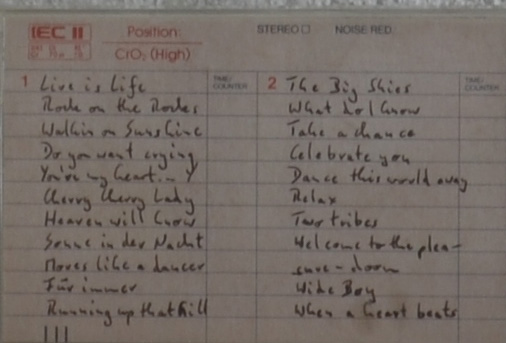 IEC II
Position:
CrO₂ (High)
STEREO □ NOISE RED.
1
TIME/
COUNTER
Live is Life
Rock on the Rocks
Walkin on Sunshine
Do you want crying
You're my heart...
Cherry Cherry Lady
Heaven will know
Sonne in der Nacht
Moves like a dancer
Für immer
Running up that hill
2
TIME/
COUNTER
The Big Skies
What do I know
Take a chance
Celebrate you
Dance this world away
Relax
Two tribes
Welcome to the plea-
sure-doom
Wide Boy
When a heart beats